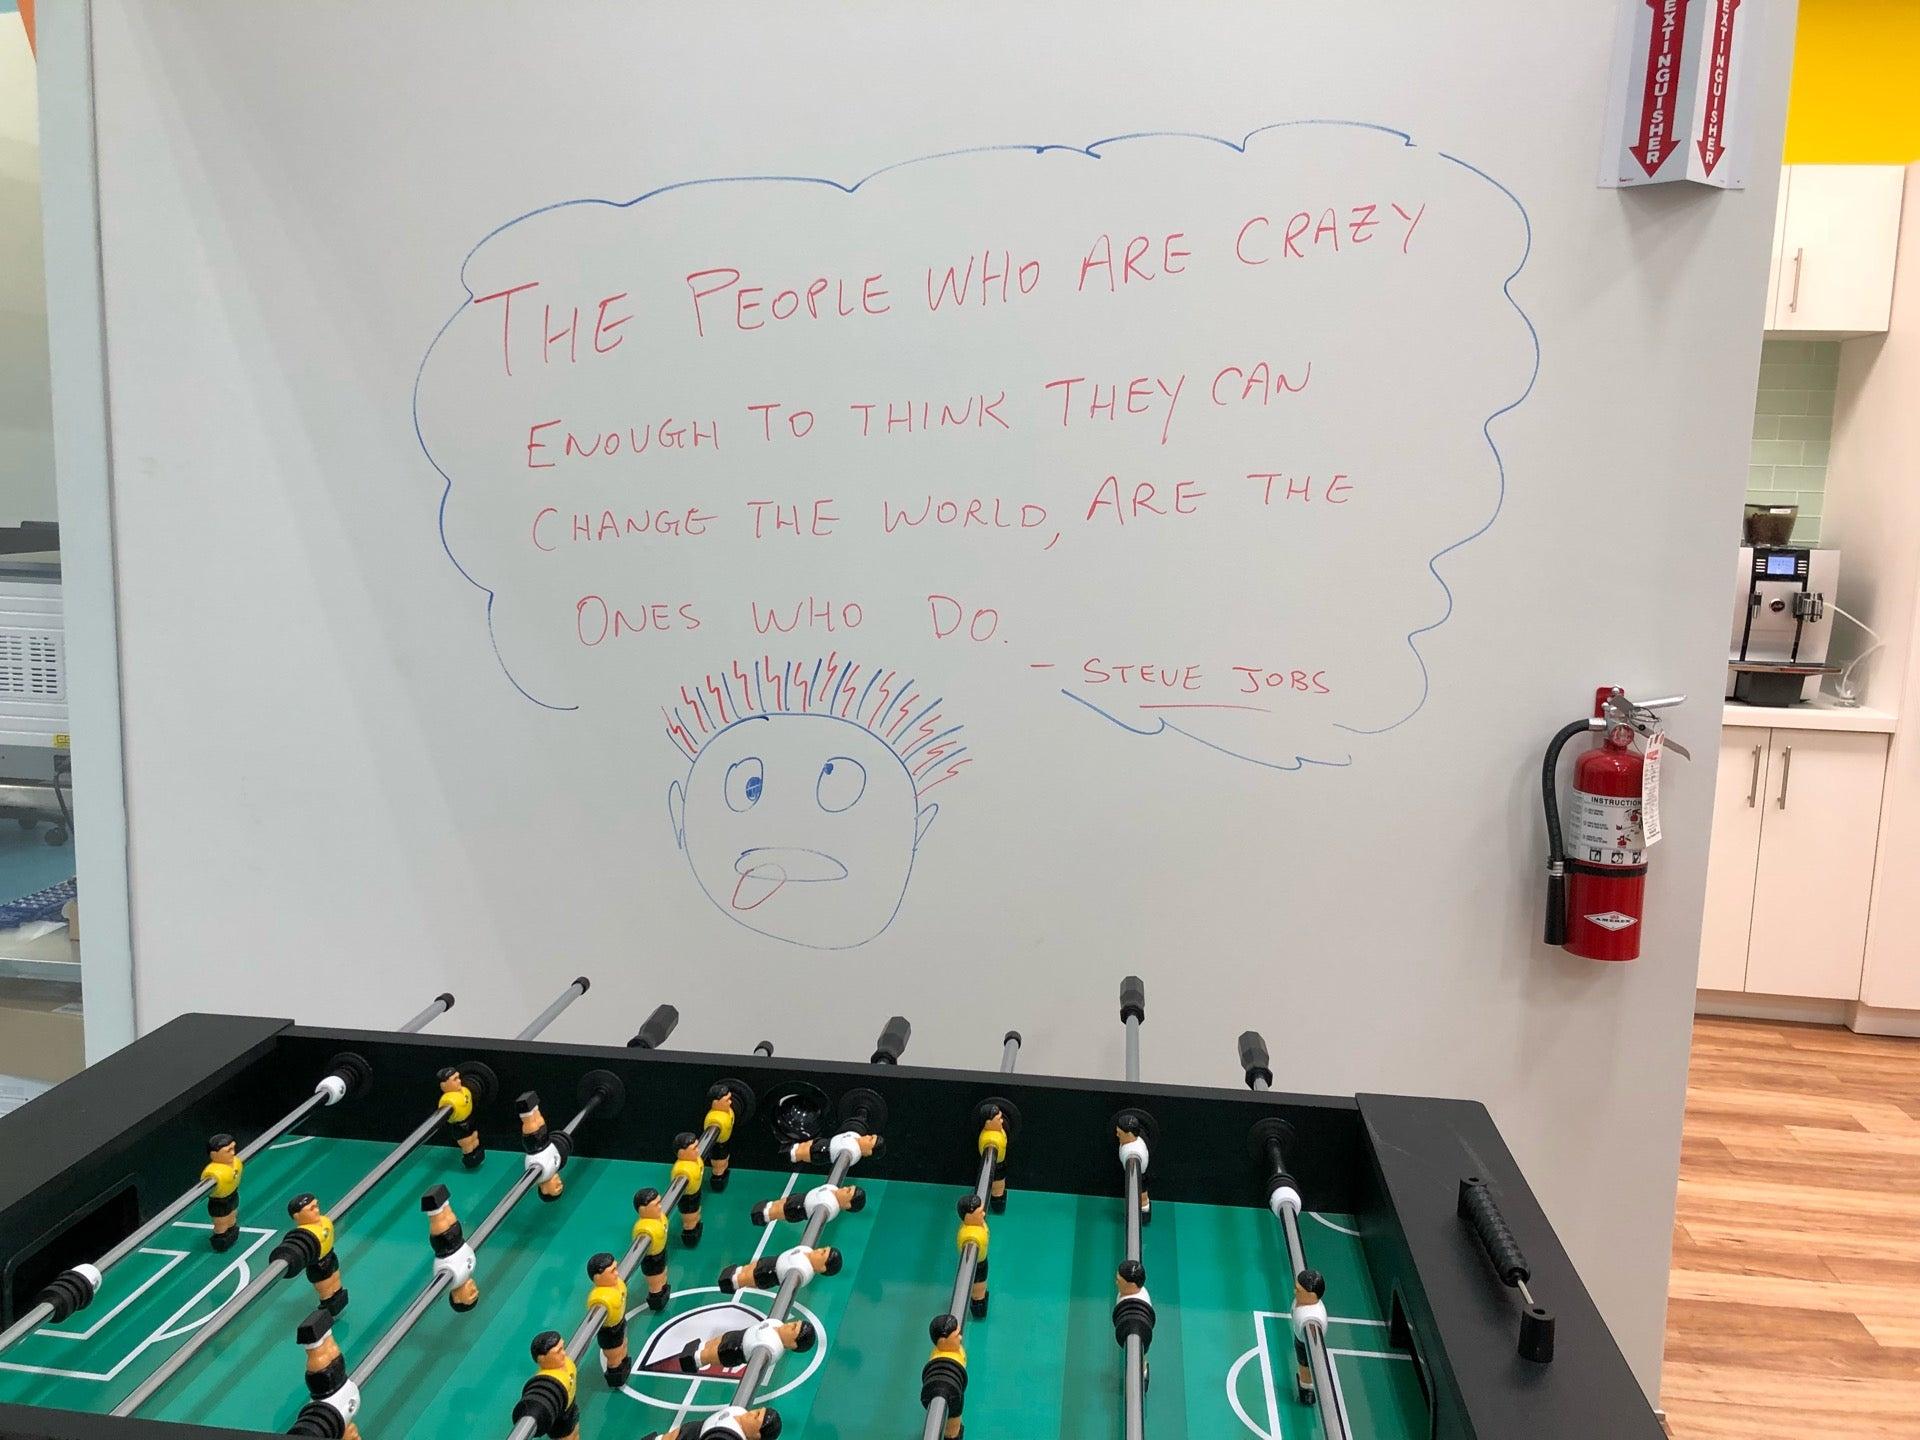 THE PEOPLE WHO ARE CRAZY
ENOUGH TO THINK THEY CAN
CHANGE THE WORLD, ARE THE
ONES WHO DO.
- STEVE JOBS
EXTINGUISHER
EXTINGUISHER
INSTRUCTION
AMEREX